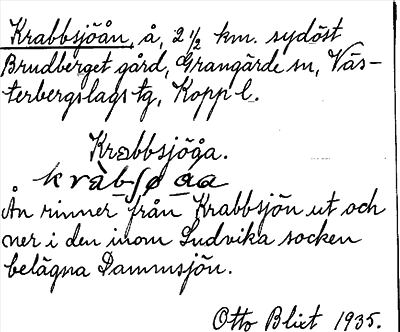 Krabbsjöån, å, 2 1/2 km. sydöst
Brudberget gård, Grangärde sn, Väs-
terbergslags tg, Kopp l.
Krabbsjöga.
kràbſø̱ a̱a
Ån rinner från Krabbsjön ut och
ner i den inom Ludvika socken
belägna Dammsjön.
Otto Blixt 1935.